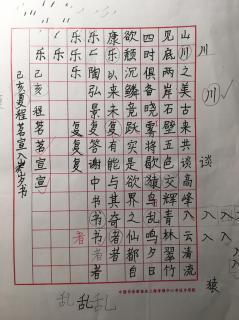 川
川
谈
入入
入入
猿
山川之美古来共谈高峰入云清流
见底两岸石壁五色交辉青林翠竹
四时俱备晓雾将歇猿鸟乱鸣夕日
欲颓沉鳞竞跃实是欲界之仙都自
康乐以来未复有能与其奇者
乐乐陶弘景复答谢中书书者
乐乐复复者
乐己亥程茗宣宣
己亥夏程茗宣
乱乱乱